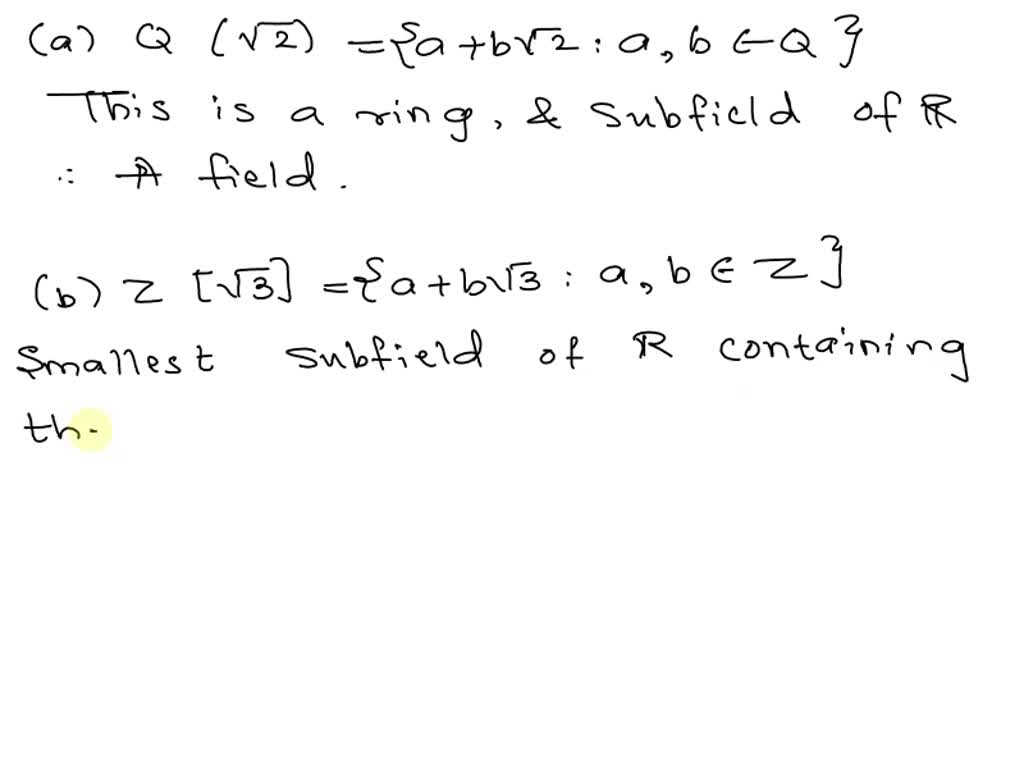 (a) Q (√2) = {a+b√2 : a, b ∈ Q }
This is a ring, & Subfield of ℝ
∴ A field.
(b) Z [√3] = {a+b√3 : a, b ∈ Z }
Smallest subfield of ℝ containing
th